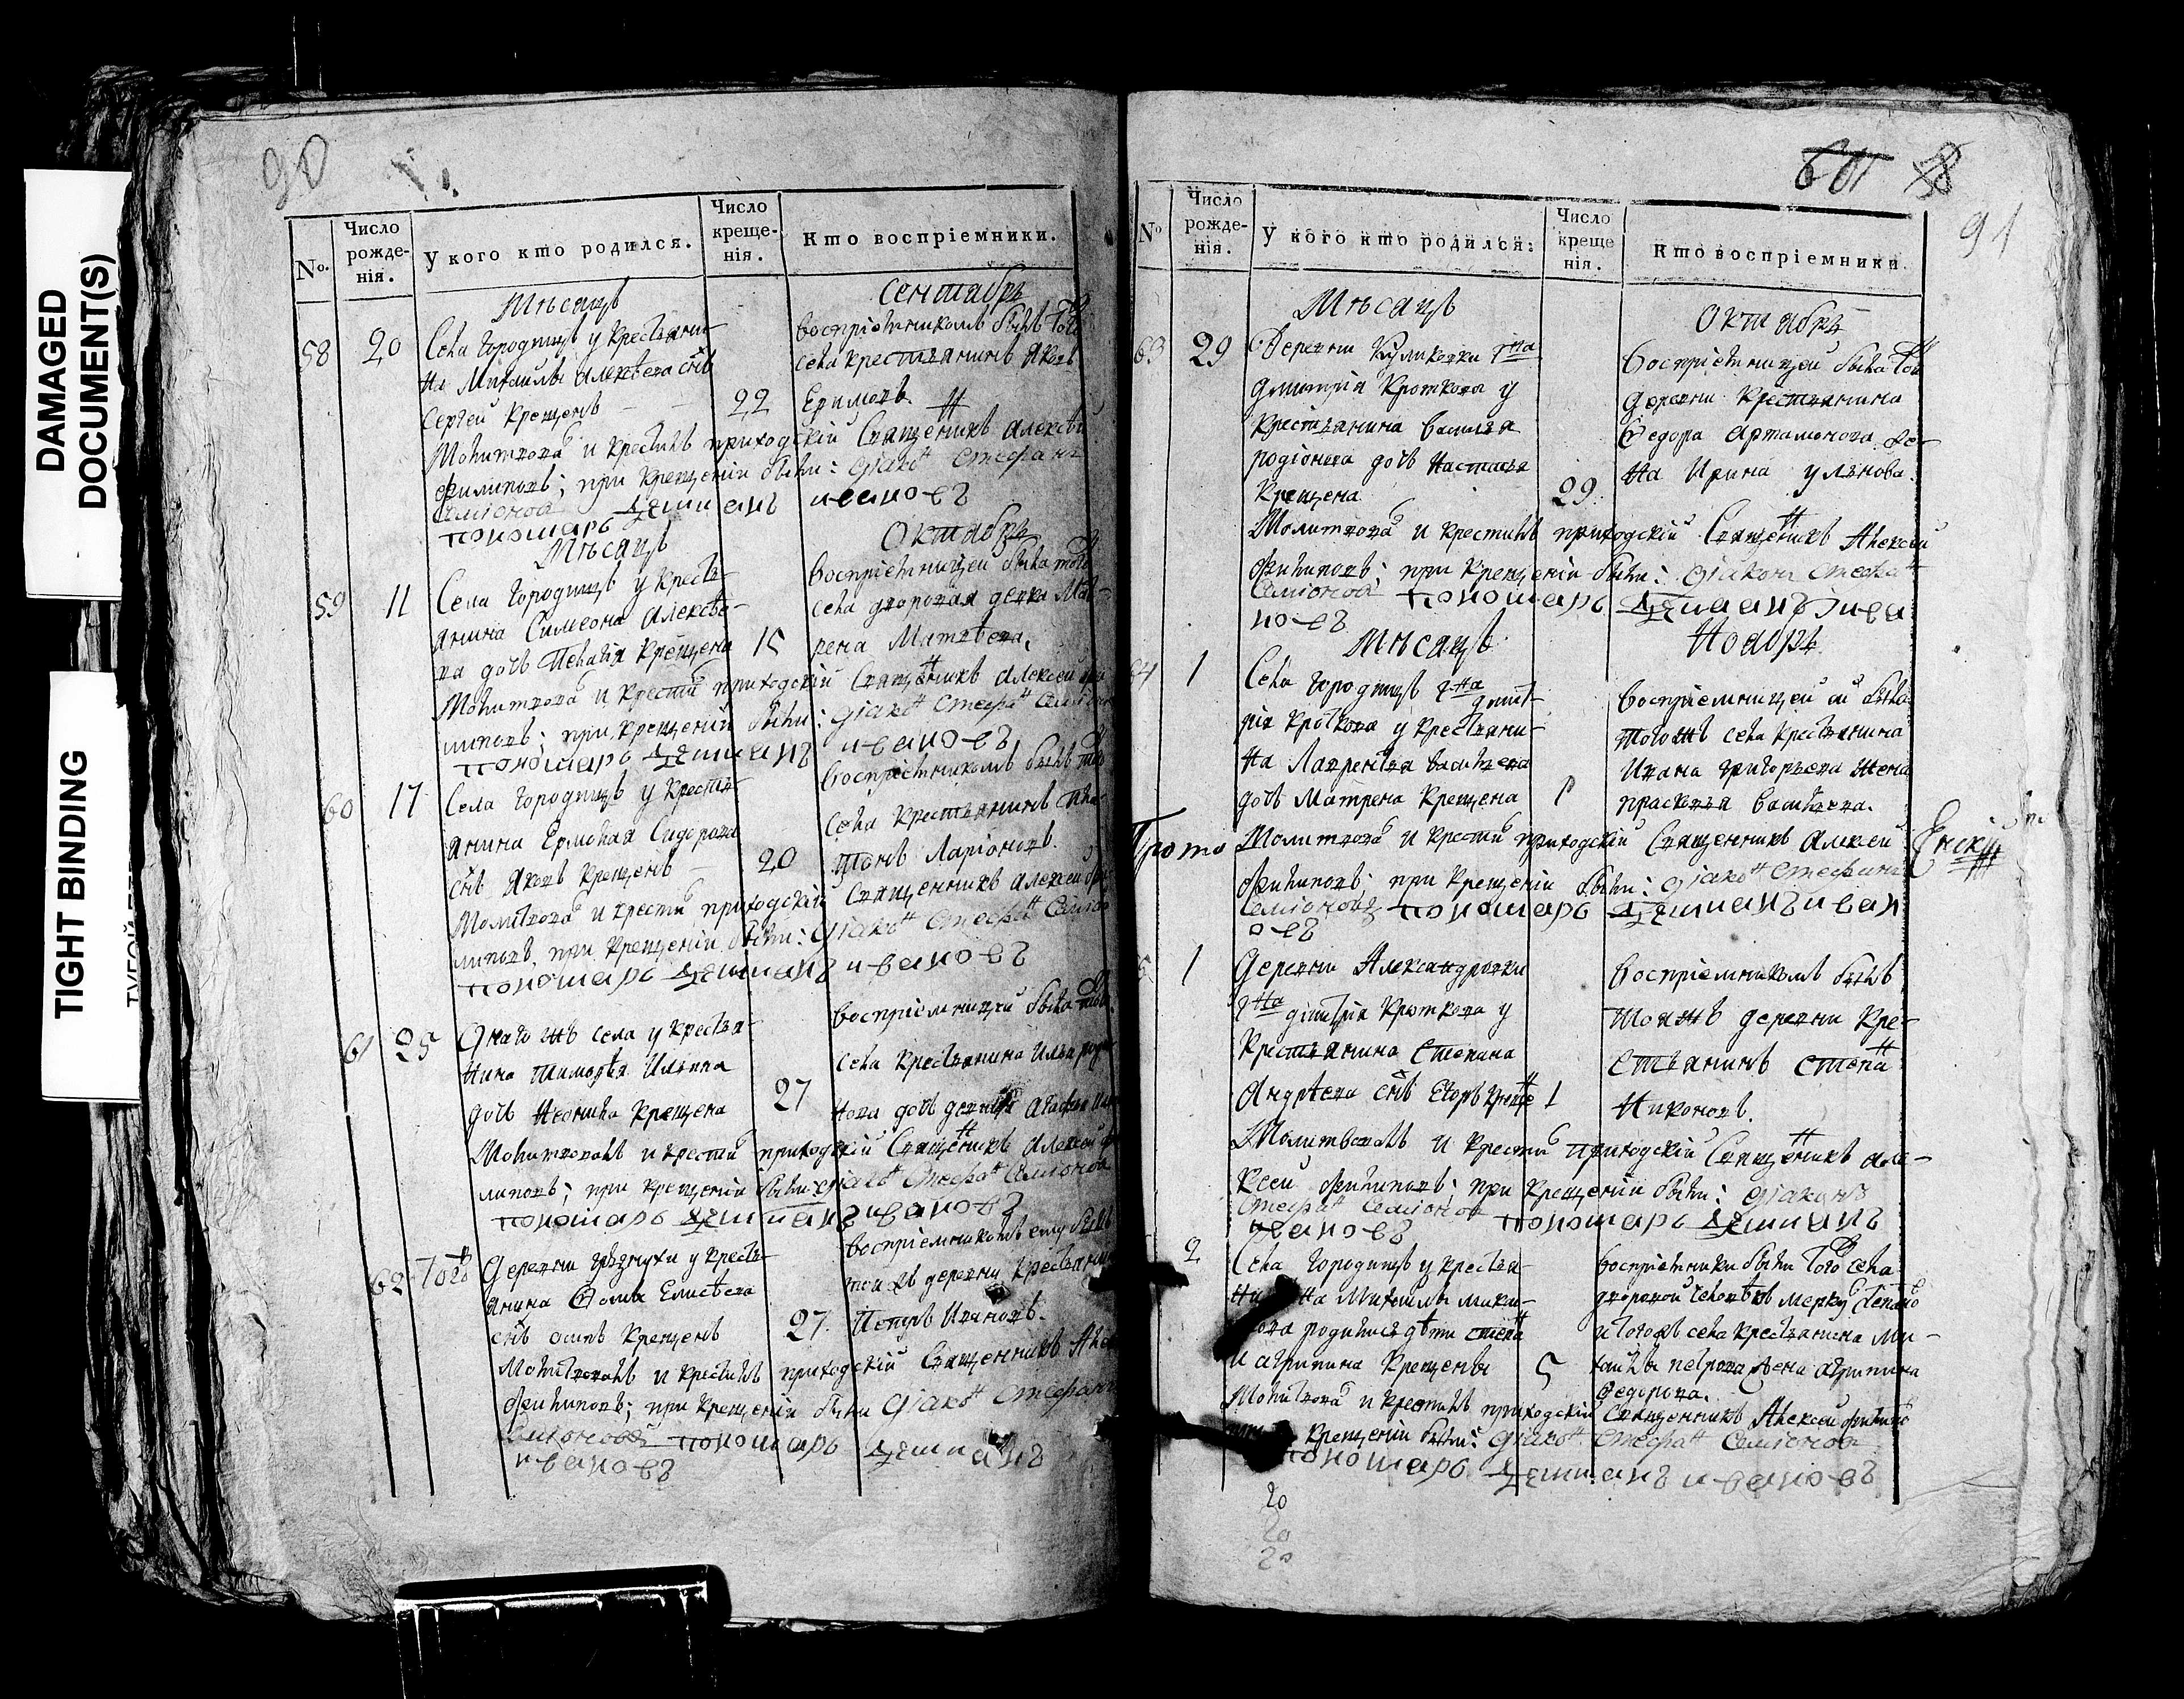 DAMAGED
DOCUMENT(S)
TIGHT BINDING
90
No.
Число
рожде-
нія.
У кого кто родился.
Число
креще-
нія.
Кто воспріемники.
Мѣсяцъ
Сентябрь
58
20
Села Городищъ у крестьяни-
на Михаилы Алексѣева снъ
Сергей крещенъ
22
воспріемникомъ былъ того
села крестьянинъ Яковъ
Ефимовъ.
Молитвова и крестилъ приходскій Священникъ Алексѣй
Филиповъ; при крещеніи были: діаконъ Стефанъ
Семіоновъ
пономарь Деміанъ Ивановъ
Мѣсяцъ
Октябрь
59
11
Села Городищъ у кресть-
янина Симеона Алексѣе-
ва дочь Пелагія крещена
15
воспріемницей была того
села дворовая девка Мат-
рена Матвѣева.
Молитвова и крести приходскій Священникъ Алексей Фи-
липовъ; при крещеніи были: діаконъ Стефанъ Семіонов
пономарь Деміанъ Ивановъ
60
17
Села Городищъ у кресть-
янина Ермолая Сидорова
снъ Яковъ крещенъ
20
воспріемникомъ былъ того
села крестьянинъ Пла-
тонъ Ларіоновъ.
Молитвова и крести приходскій Священникъ Алексей Фи-
липовъ, при крещеніи были: діаконъ Стефанъ Семіонов
пономарь Деміанъ Ивановъ
61
25
Онаго жъ села у крестья-
нина Тимофѣя Ильина
дочь Неонила крещена
27
воспріемницей была того
села крестьянина Ильи Родіо-
нова дочь девица Агафья
Молитвовалъ и крести приходскій Священникъ Алексей Фи-
липовъ; при крещеніи были діаконъ Стефанъ Семіонов
пономарь Деміанъ Ивановъ
62
Тогож
Деревни Грязнухи у кресть-
янина Фомы Елисѣева
снъ Осипъ крещенъ
27.
воспріемникомъ ему былъ
той жъ деревни крестьянинъ
Петръ Ивановъ.
Молитвовалъ и крестилъ приходскій Священникъ Алексей
Филиповъ; при крещеніи были діаконъ Стефанъ
Семіоновъ пономарь Деміанъ
Ивановъ
91
No
Число
рожде-
нія.
У кого кто родился:
Число
креще
нія.
Кто воспріемники.
Мѣсяцъ
Октябрь
63
29
Деревни Куликовки Гна
Дмитрія Кроткова у
крестьянина Василья
Родіонова дочь Настасья
крещена
29.
воспріемницей была той
деревни крестьянина
Федора Артамонова же-
на Ирина Ульянова.
Молитвова и крестилъ приходскій Священникъ Алексѣй
Филиповъ; при крещеніи были: діаконъ Стефанъ
Семіоновъ пономарь Деміанъ Ива
новъ
Мѣсяцъ
Ноябрь
64
1
Села Городищъ Гна Дмит-
рія Кроткова у крестьяни-
на Лаврентья Васильева
дочь Матрена крещена
1
воспріемницей ей была
того жъ села крестьянина
Ивана Григорьева жена
Прасковья Васильева.
Молитвова и крести приходскій Священникъ Алексей
Филиповъ; при крещеніи были: діаконъ Стефанъ
Семіоновъ пономарь Деміанъ Иван
овъ
1
Деревни Александровки
Гна Дімітрія Кроткова у
крестьянина Степана
Андрѣева снъ Егоръ креще
1
воспріемникомъ былъ
тояжъ деревни кре-
стьянинъ Степанъ
Никоновъ.
Молитвовалъ и крести приходскій Священникъ Але-
ксей Филиповъ; при крещеніи были: діаконъ
Стефанъ Семіоновъ пономарь Деміанъ
Ивановъ
2
Села Городищъ у крестья-
на Михаилы
родились дѣти Степанъ
и Агрипина крещены
5
воспріемники были того села
дворовой человѣкъ
и того жъ села крестьянина Ми-
хайлы Петрова жена Агрипина
Федорова.
Молитвова и крестилъ приходскій Священникъ Алексей Филипов
крещеніи были: діаконъ Стефанъ Семіонов
пономарь Деміанъ Ивановъ
20
20
20